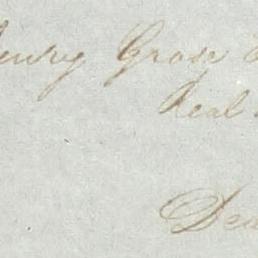 enry Grose
Neal
Dea